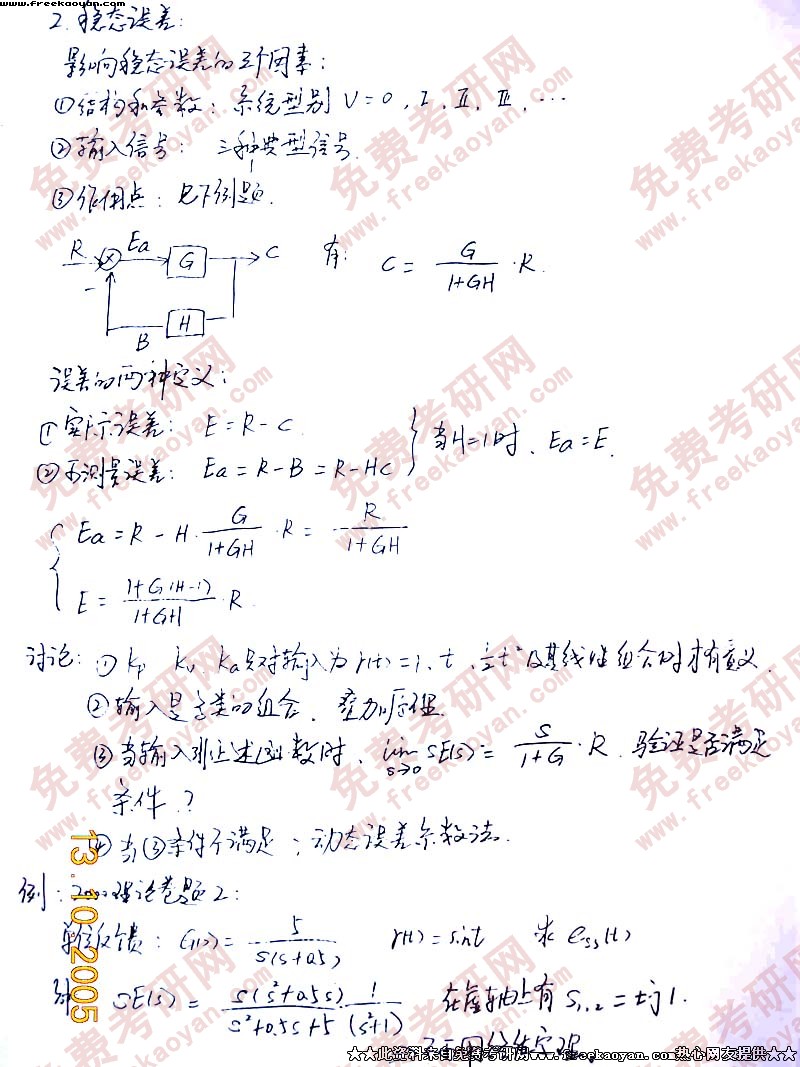 www.freekaoyan.com
2. 稳态误差:
影响稳态误差的三个因素:
①结构和参数: 系统型别 V=0, I, II, III, …
②输入信号: 三种典型信号.
③作用点: 见下例题.
R Ea G C
- B H
有: C = G/(1+GH) · R.
误差的两种定义:
①实际误差: E=R-C
②可测量误差: Ea=R-B=R-HC
当H=1时, Ea=E.
Ea = R - H · G/(1+GH) · R = R/(1+GH)
E = (1+G(H-1))/(1+GH) · R.
讨论: ① Kp Kv Ka 只对输入为 r(t)=1, t, ½t² 及其线性组合时才有意义.
②输入是各类的组合, 叠加原理.
③当输入非上述函数时, lim s→0 SE(s) = S/(1+G) · R. 验证是否满足
条件?
④当③条件不满足; 动态误差系数法.
例: 2000 题2:
单位反馈: G(s) = 5/(s(s+0.5)) r(t)=sint 求 ess(t)
解 SE(s) = s(s²+0.5s)/(s²+0.5s+5) 1/(s²+1) 在虚轴上有 S1,2=±j1.
不可用终值定理.
★★此资料来自免费考研网www.freekaoyan.com热心网友提供★★
13.10.2005
免费考研网
www.freekaoyan.com